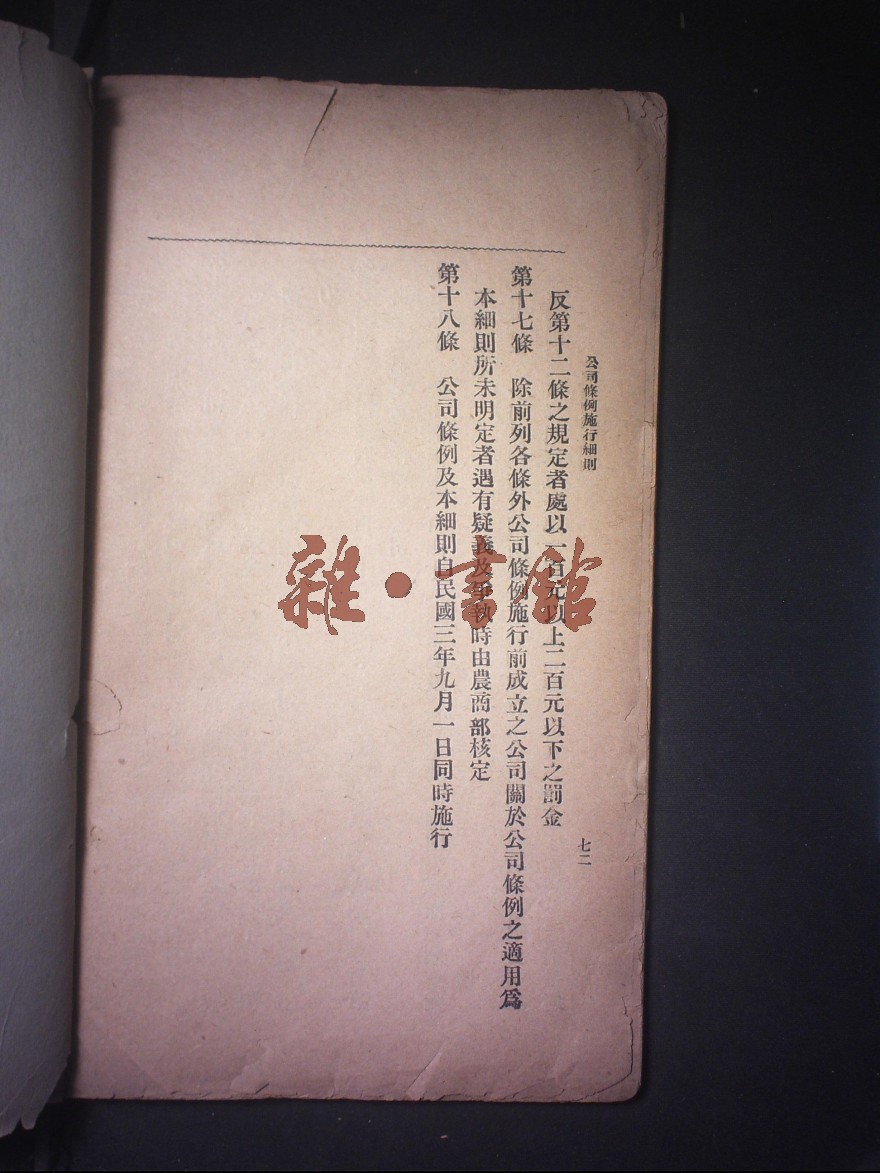 公司條例施行細則
七二
反第十二條之規定者處以一百元以上二百元以下之罰金
第十七條　除前列各條外公司條例施行前成立之公司關於公司條例之適用爲
本細則所未明定者遇有疑義及爭執時由農商部核定
第十八條　公司條例及本細則自民國三年九月一日同時施行
雜·書館